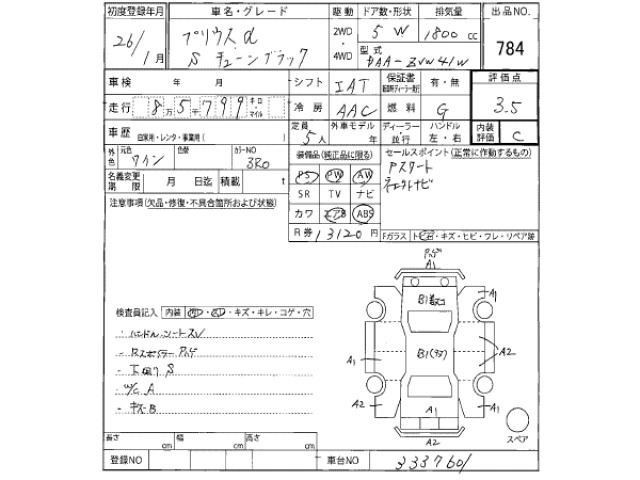 初度登録年月 車名・グレード 駆動 ドア数・形状 排気量 出品NO.
26/1月 プリウスα 2WD・4WD 5 W 1800cc 784
S チューンブラック 型式 DAA-ZVW41W
車検 年 月 シフト IAT 保証書 有・無 評価点
走行 8万5千799キロ マイル 冷房 AAC 燃料 G 3.5
車歴 自家用・レンタ・事業用( ) 定員 5人 外車モデル 年 ディーラー・並行 ハンドル 左・右 内装評価 C
外色 元色 ワイン 色替 カラーNO 3R0 装備品(純正品に限る) セールスポイント(正常に作動するもの)
名義変更期限 月 日迄 積載 t PS PW AW Pスタート
SR TV ナビ
注意事項(欠品・修復・不具合箇所および状態) カワ エアB ABS
R券 13120円 Fガラス ト・キズ・ヒビ・ワレ・リペア跡
A1
検査員記入 内装 ・キズ・キレ・コゲ・穴 B1 A1
・ハンドル、シートスレ
A1 B1 A2
・下廻り S
・W/C A
・キズB A2 A1 A1
A2 スペア
長さ cm 幅 cm 高さ cm
登録NO 車台NO 333760/